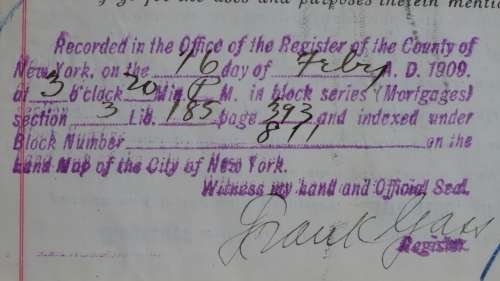 for the uses and purposes therein menti
Recorded in the Office of the Register of the County of
New York, on the 16 day of Feby A. D. 1909.
at 3 o'clock 20 Min P M. in block series (Mortgages)
section 3 Lib. 185 page 393 and indexed under
Block Number 811 on the
Land Map of the City of New York.
Witness my hand and Official Seal.
Frank Gass
Register